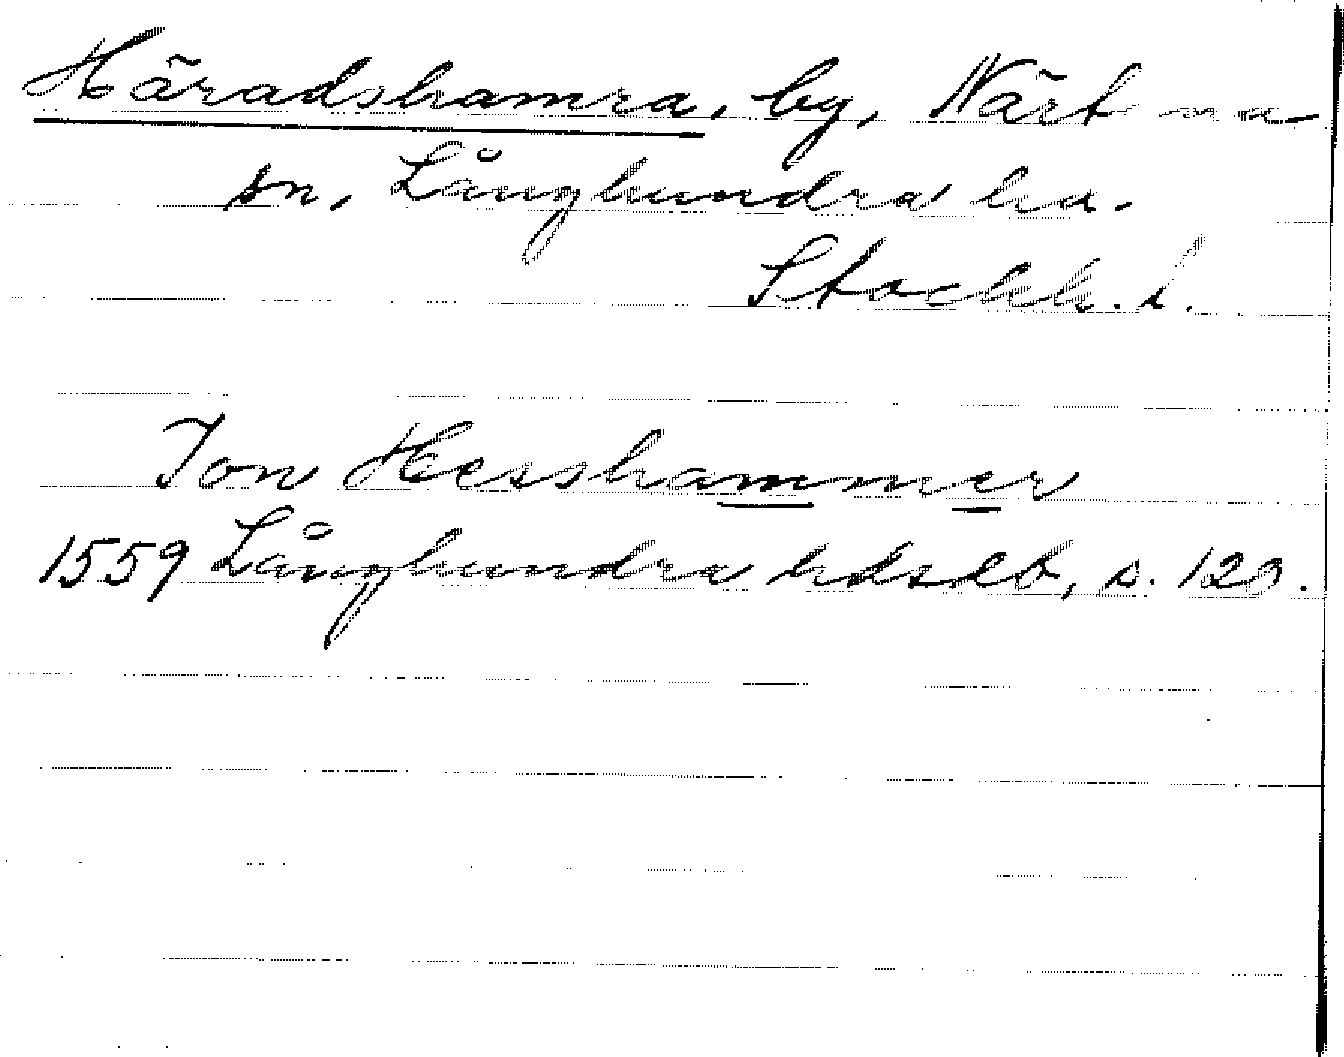 Häradshamra, by, Närtuna
sn, Långhundra hd.
Stockh. l.
Jon Hesshammer
1559 Långhundra hdsdb, s. 123.